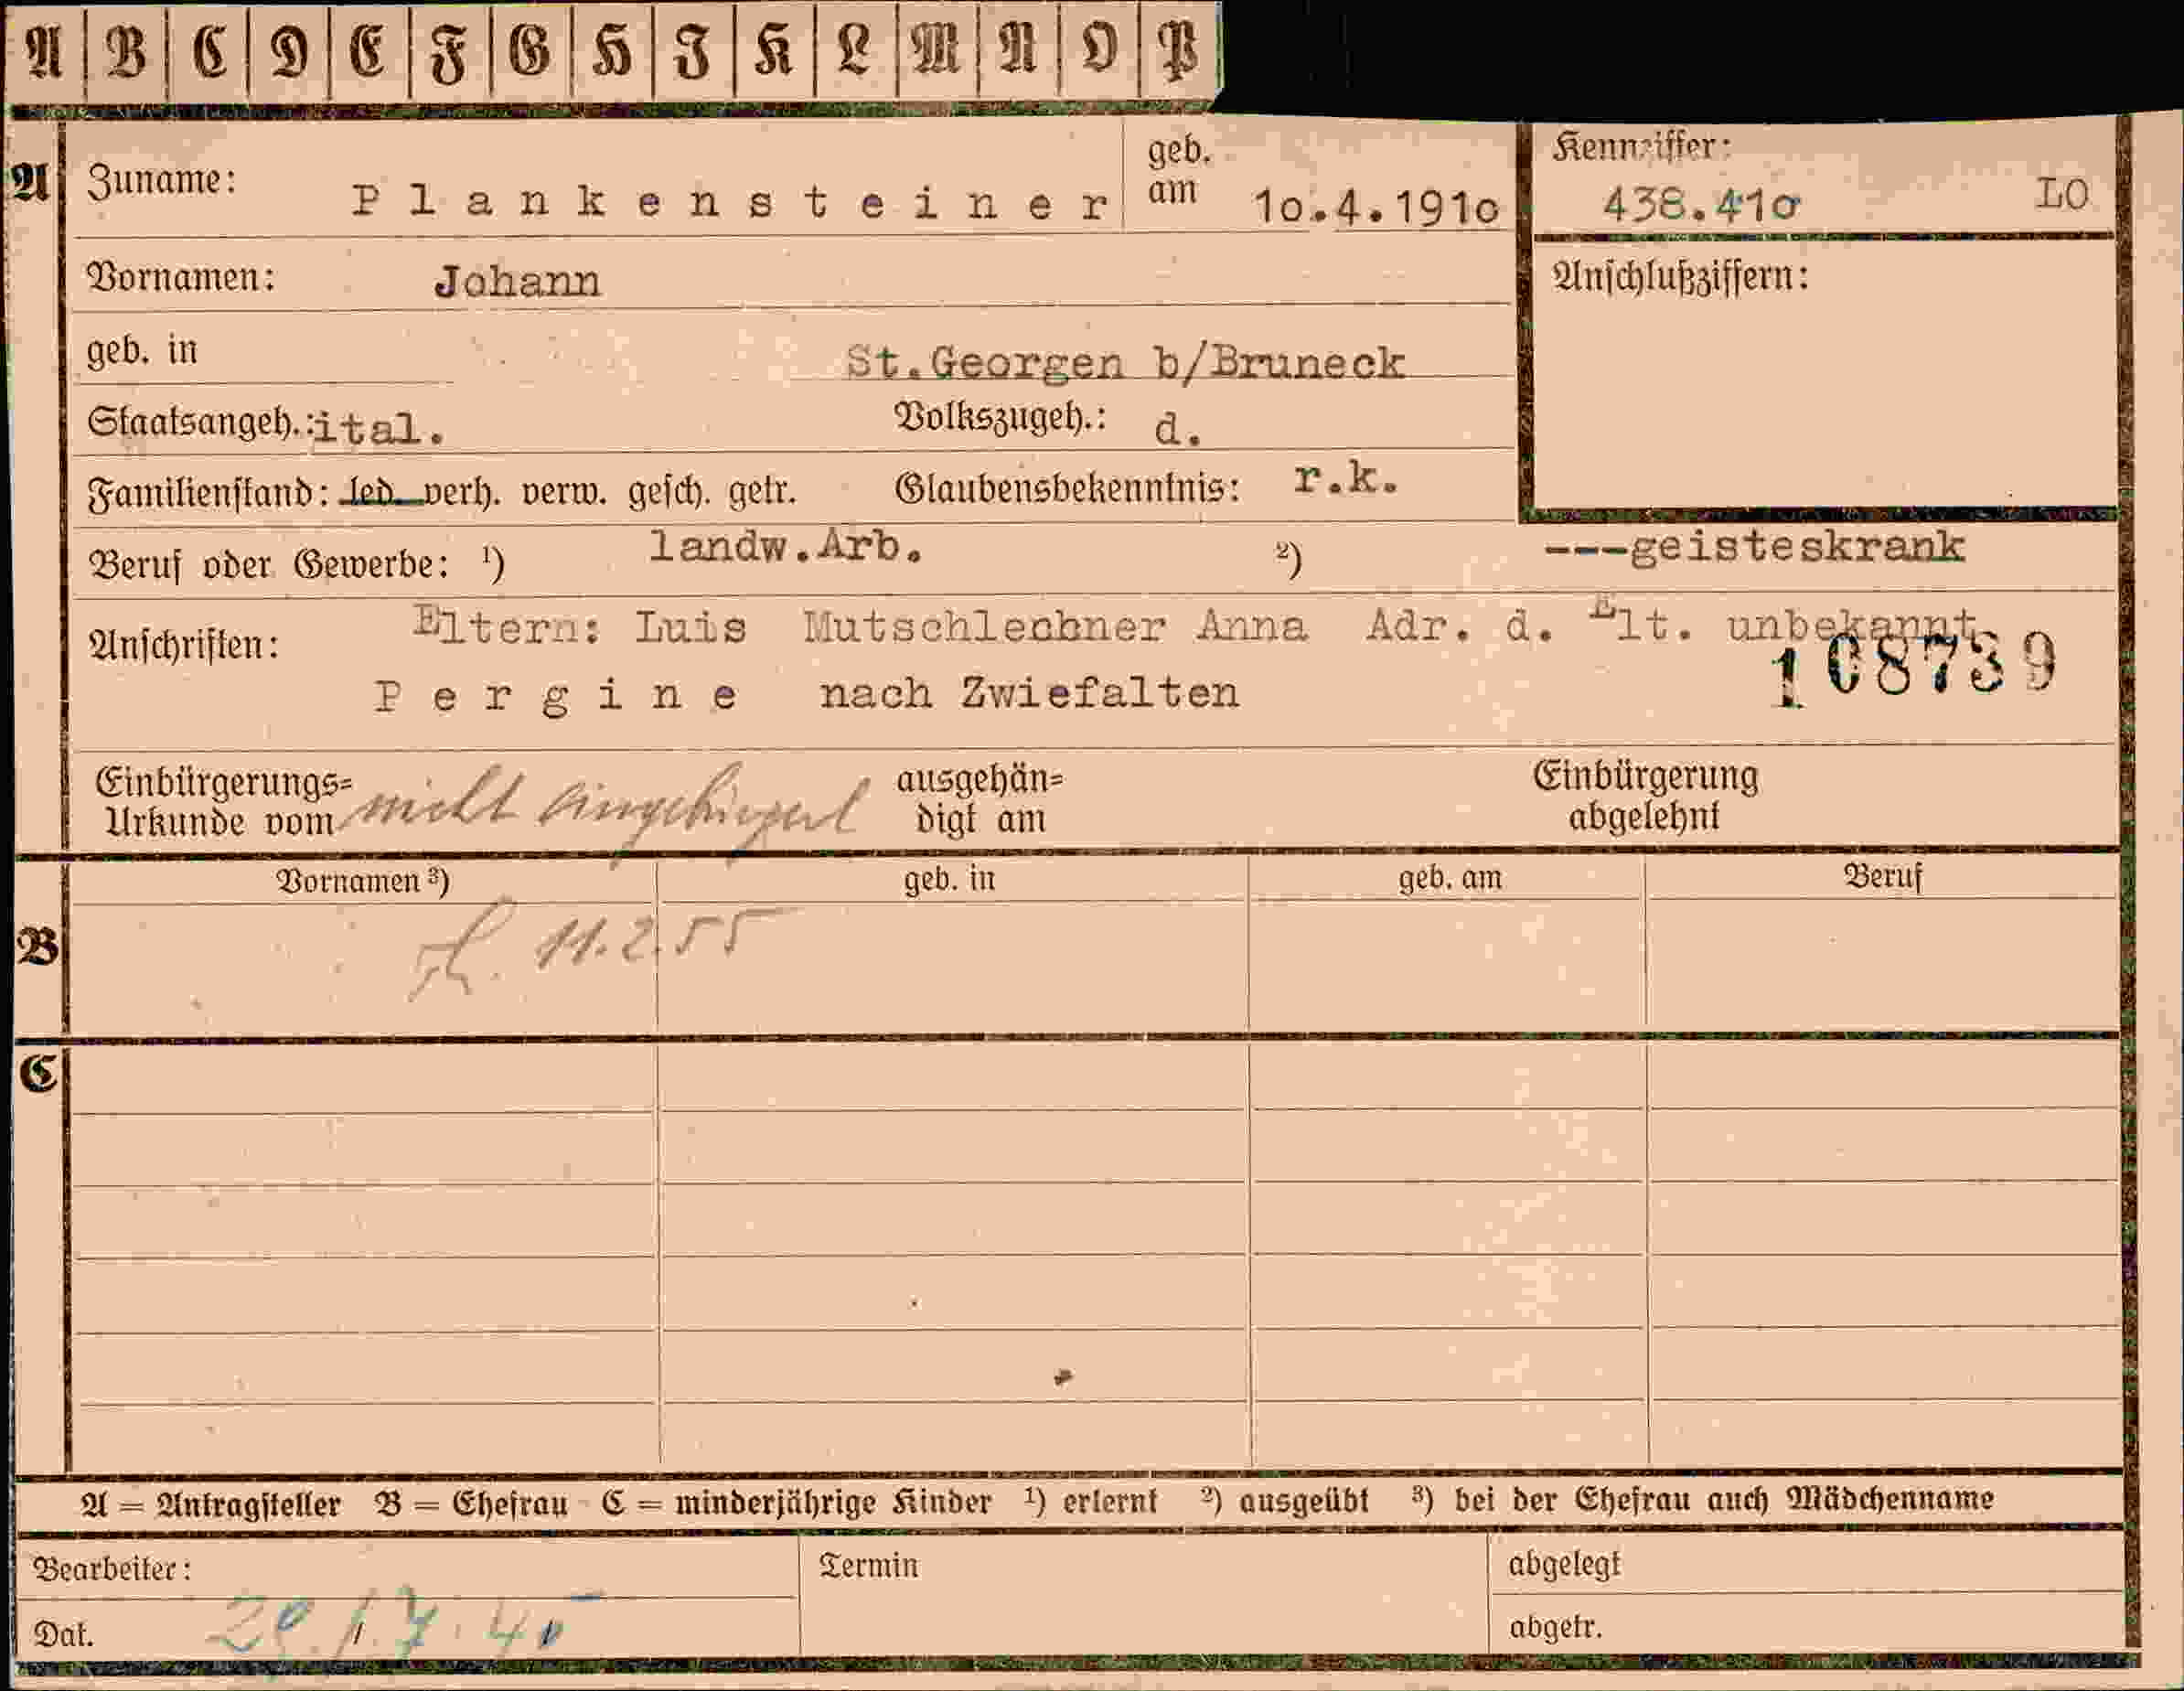 A B C D E F G H J K L M N O P
A Zuname: Plankensteiner geb. am 1o.4.191o Kennziffer: 438.41o LO
Vornamen: Johann Anschlußziffern:
geb. in St.Georgen b/Bruneck
Staatsangeh.: ital. Volkszugeh.: d.
Familienstand: led. verh. verw. gesch. getr. Glaubensbekenntnis: r.k.
Beruf oder Gewerbe: ¹) landw.Arb. ²) ---geisteskrank
Anschriften: Eltern: Luis Mutschlechner Anna Adr. d. Elt. unbekannt
108739
Pergine nach Zwiefalten
Einbürgerungs= Urkunde vom nicht eingebürgert ausgehän= digt am Einbürgerung abgelehnt
B Vornamen ³) geb. in geb. am Beruf
11.2.55
C
A = Antragsteller B = Ehefrau C = minderjährige Kinder ¹) erlernt ²) ausgeübt ³) bei der Ehefrau auch Mädchenname
Bearbeiter: Termin abgelegt
Dat. abgetr.